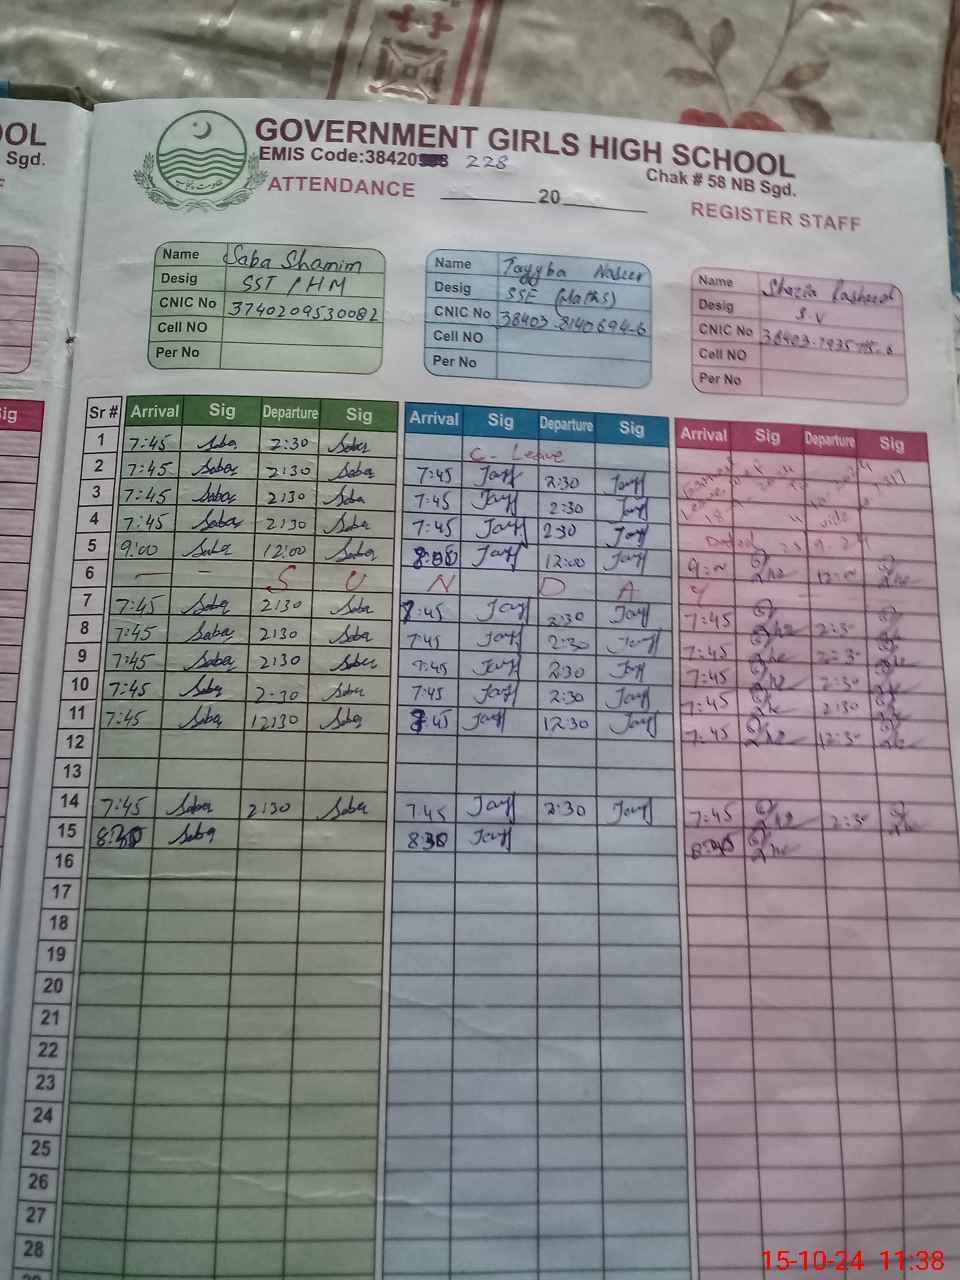 OOL
Sgd.
GOVERNMENT GIRLS HIGH SCHOOL
EMIS Code:38420 228
Chak # 58 NB Sgd.
ATTENDANCE 20 REGISTER STAFF
Name Saba Shamim
Desig SST / HM
CNIC No 3740209530082
Cell NO
Per No
Name Tayyba Naseer
Desig SSE (Maths)
CNIC No 38403-8140694-6
Cell NO
Per No
Name Shazia Rasheed
Desig S.V
CNIC No
Cell NO
Per No
ig
Sr # Arrival Sig Departure Sig Arrival Sig Departure Sig Arrival Sig Departure Sig
1 7:45 Saba 2:30 Saba C- Leave
2 7:45 Saba 2:30 Saba 7:45 Tayy 2:30 Tayy
3 7:45 Saba 2:30 Saba 7:45 Tayy 2:30 Tayy
4 7:45 Saba 2:30 Saba 7:45 Tayy 2:30 Tayy
5 9:00 Saba 12:00 Saba Tayy 12:00 Tayy 9:00 12:00
6 — – S U N D A Y
7 7:45 Saba 2:30 Saba 7:45 Tayy 2:30 Tayy 7:45 2:30
8 7:45 Saba 2:30 Saba 7:45 Tayy 2:30 Tayy 7:45 2:30
9 7:45 Saba 2:30 Saba 7:45 Tayy 2:30 Tayy 7:45 2:30
10 7:45 Saba 2:30 Saba 7:45 Tayy 2:30 Tayy 7:45 2:30
11 7:45 Saba 12:30 Saba 7:45 Tayy 12:30 Tayy 7:45 12:30
12
13
14 7:45 Saba 2:30 Saba 7:45 Tayy 2:30 Tayy 7:45 2:30
15 8:30 Saba 8:30 Tayy 8:30
16
17
18
19
20
21
22
23
24
25
26
27
28
15-10-24 11:38